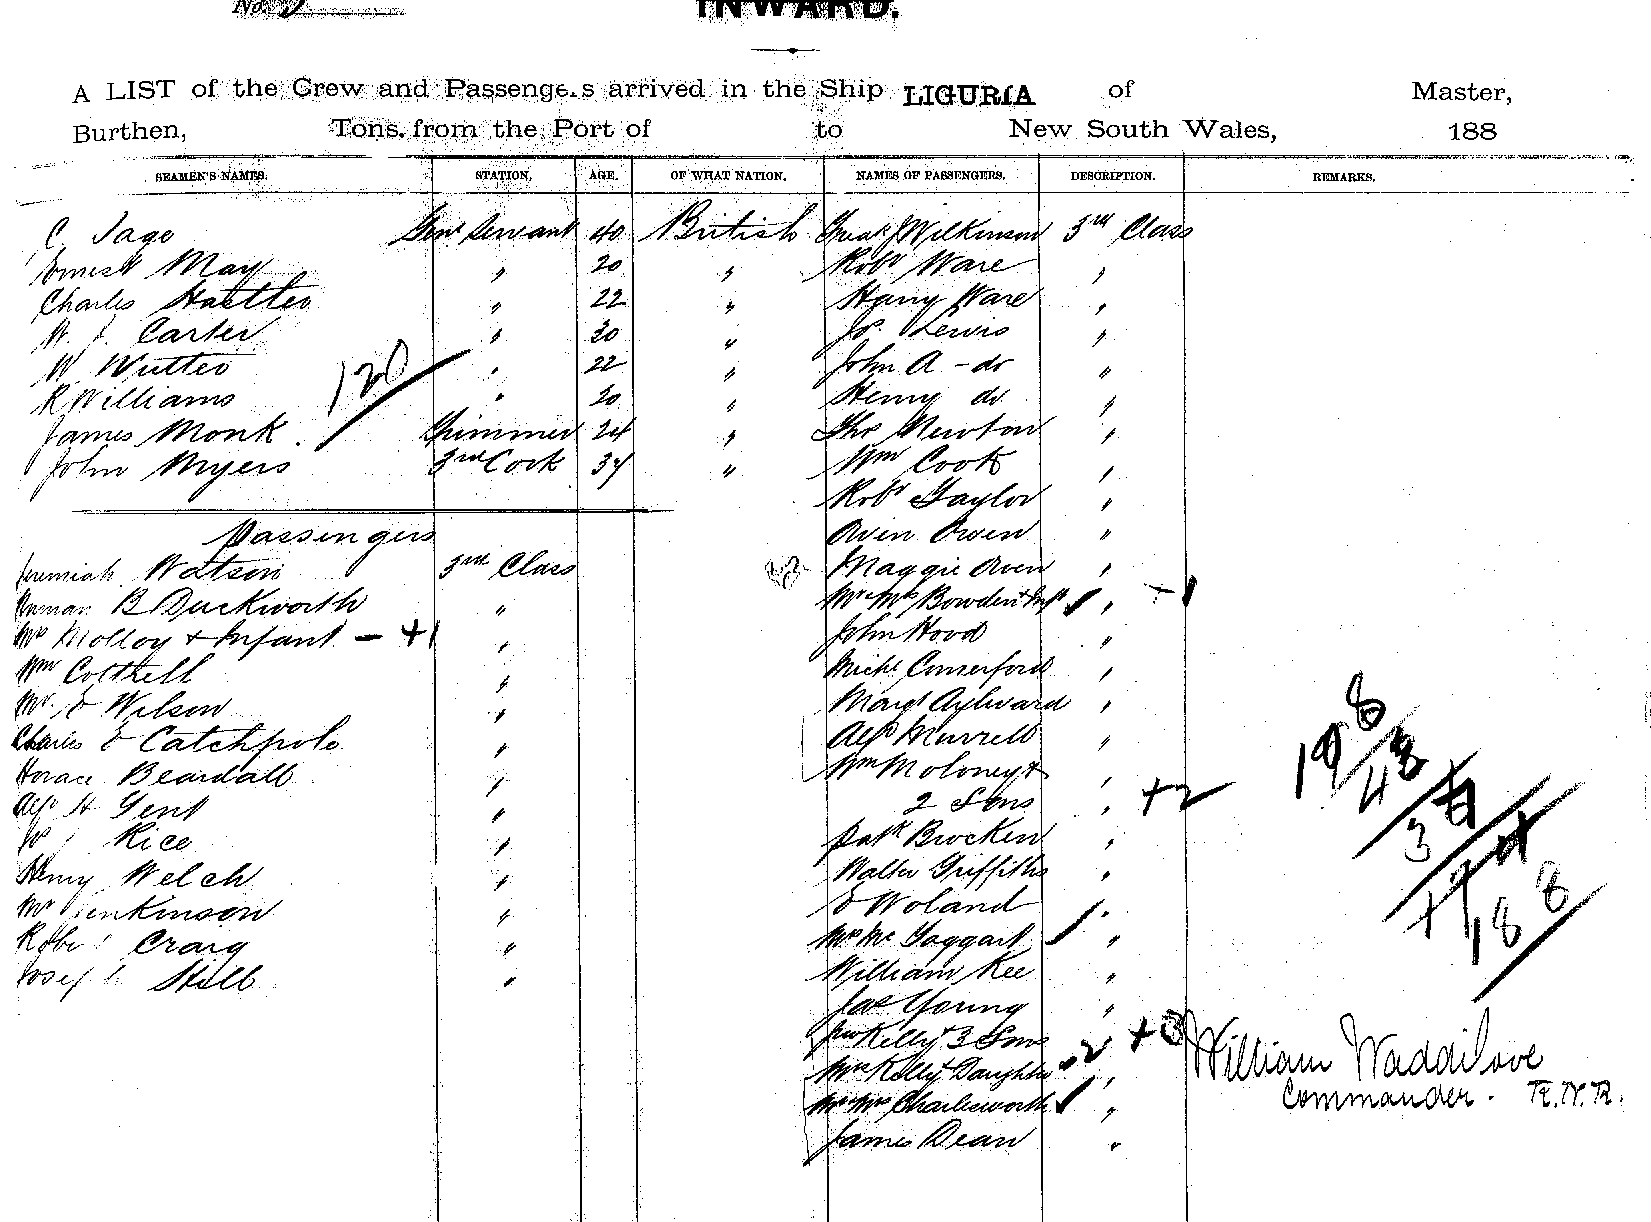 No.
INWARD.
A LIST of the Crew and Passengers arrived in the Ship LIGURIA of Master,
Burthen, Tons, from the Port of to New South Wales, 188
SEAMEN'S NAMES. STATION. AGE. OF WHAT NATION. NAMES OF PASSENGERS. DESCRIPTION. REMARKS.
C Jago Genl Servant 40 British Fredk J Wilkinson 3rd Class
Ernest May " 20 " Robt Ware "
Charles " 22 " Harry Ware "
W. J. Carter " 30 " Jos. Lewis "
W " 22 " John A - do "
R Williams " 20 " Henry do "
James Monk. Trimmer 24 " Thos Newton "
120
John Myers 3rd Cook 34 " Wm Cook "
Robt Taylor "
Passengers Owen Owen "
Jeremiah Watson 3rd Class Maggie Owen "
B Duckworth " Mr & Mrs Bowden & Inft " -1
Mrs Molloy + Infant - +1 " John Hood "
Wm Cottrell " Michl Comerford "
Mr. E Wilson " Margt Aylward "
Charles E Catchpole " Alfd Murrell "
Horace Beardall " Wm Moloney +
Alfd H Gent " 2 Sons " +2
Rice " Patk Brocken "
Henry Welch " Walter Griffiths "
Mr Jenkinson " E Woland "
Robt Craig " Mr Mc Taggart "
Joseph Still " William Kee "
Jas Young "
Jno Kelly + 3 Sons " +3
Mrs Kelly + Daughter -2 "
Mr & Mrs Charlesworth "
James Dean "
198
48
3
188
William Waddilove
Commander. R.N.R.